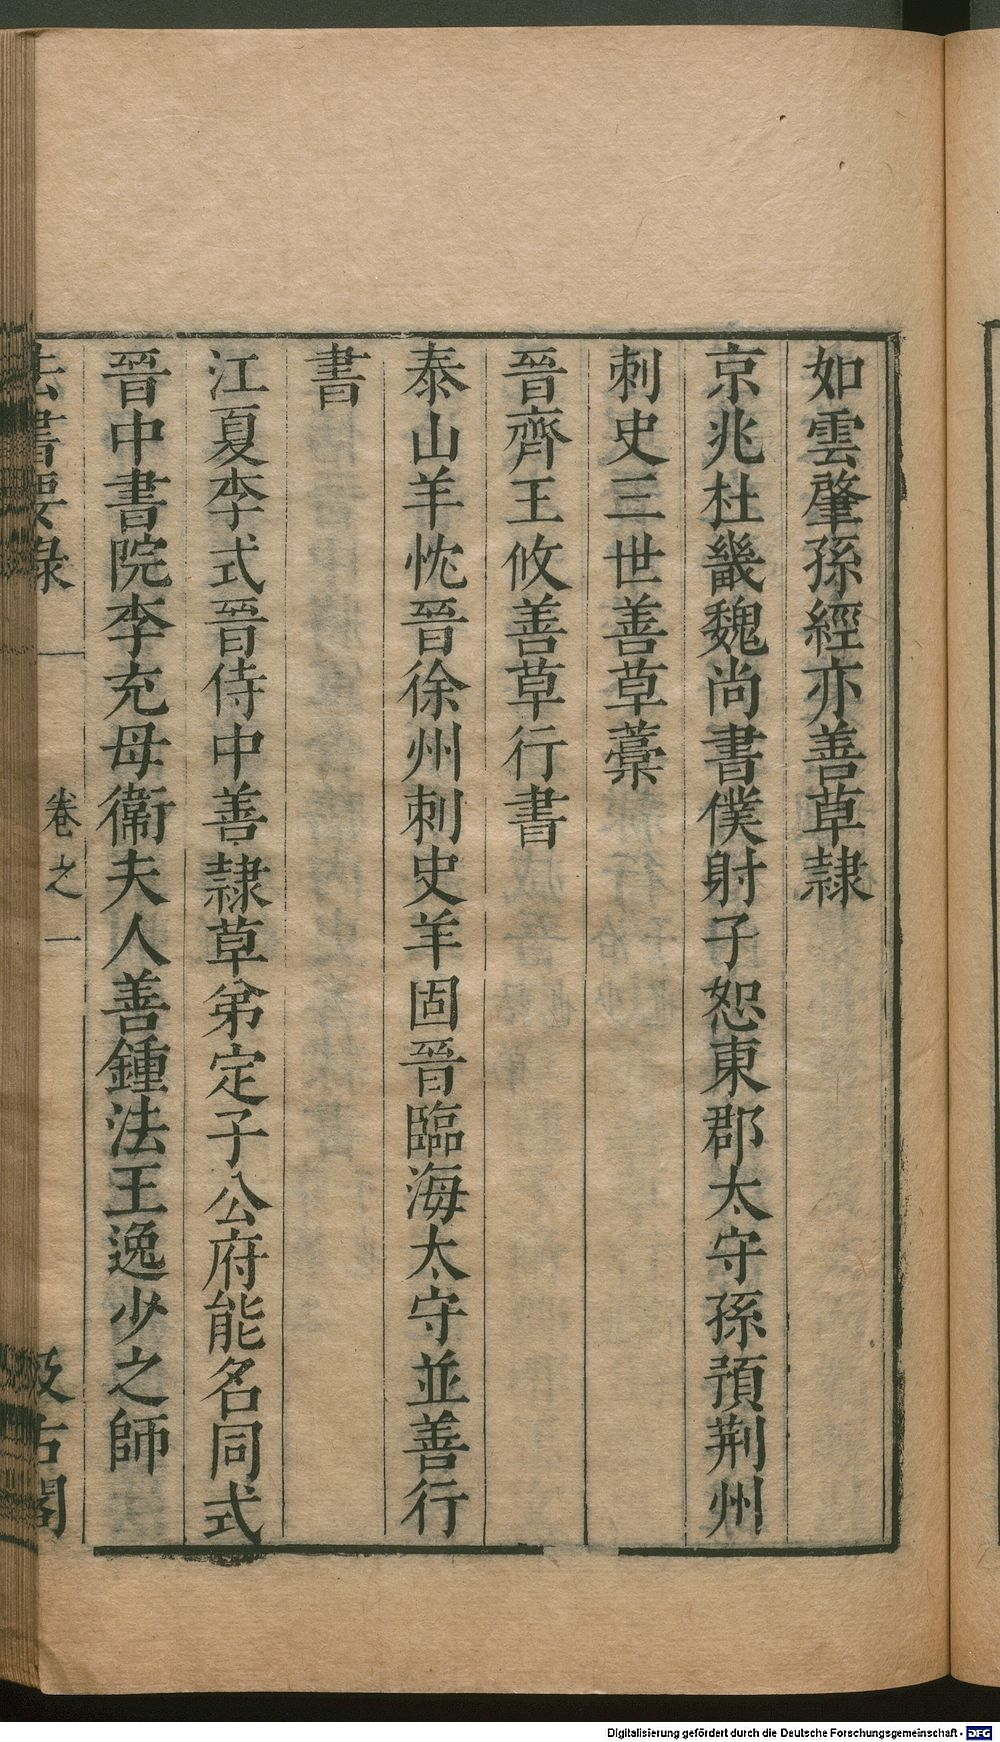 如雲肇孫經亦善草隸
京兆杜畿魏尚書僕射子恕東郡太守孫預荆州
刺史三世善草藁
晉齊王攸善草行書
泰山羊忱晉徐州刺史羊固晉臨海太守並善行
書
江夏李式晉侍中善隸草弟定子公府能名同式
晉中書院李充母衞夫人善鍾法王逸少之師
法書要錄 卷之一 汲古閣
Digitalisierung gefördert durch die Deutsche Forschungsgemeinschaft - DFG